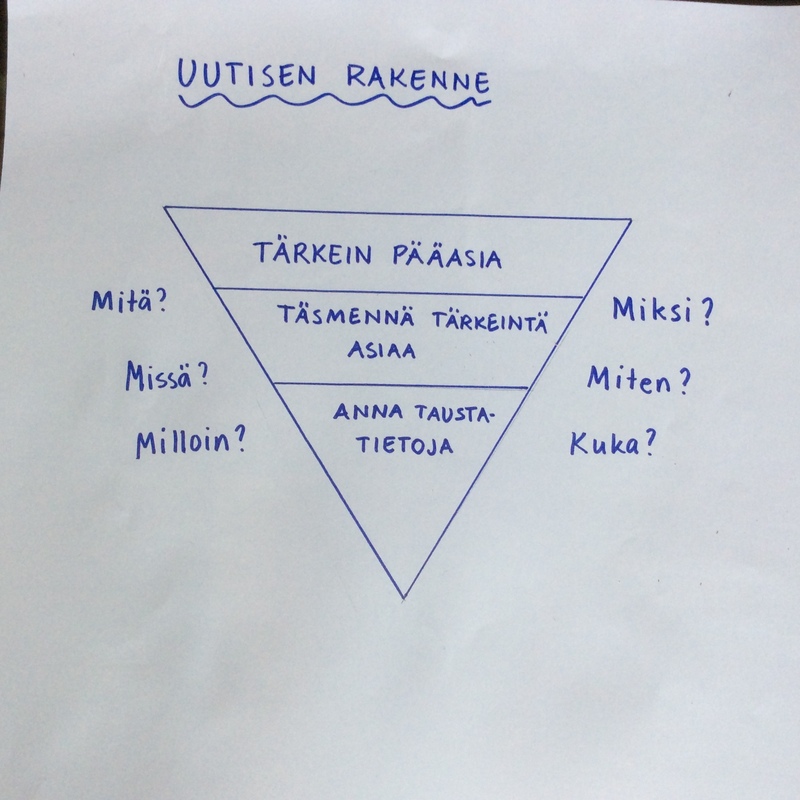 UUTISEN RAKENNE
TÄRKEIN PÄÄASIA
TÄSMENNÄ TÄRKEINTÄ
ASIAA
ANNA TAUSTA-
TIETOJA
Mitä?
Missä?
Milloin?
Miksi?
Miten?
Kuka?